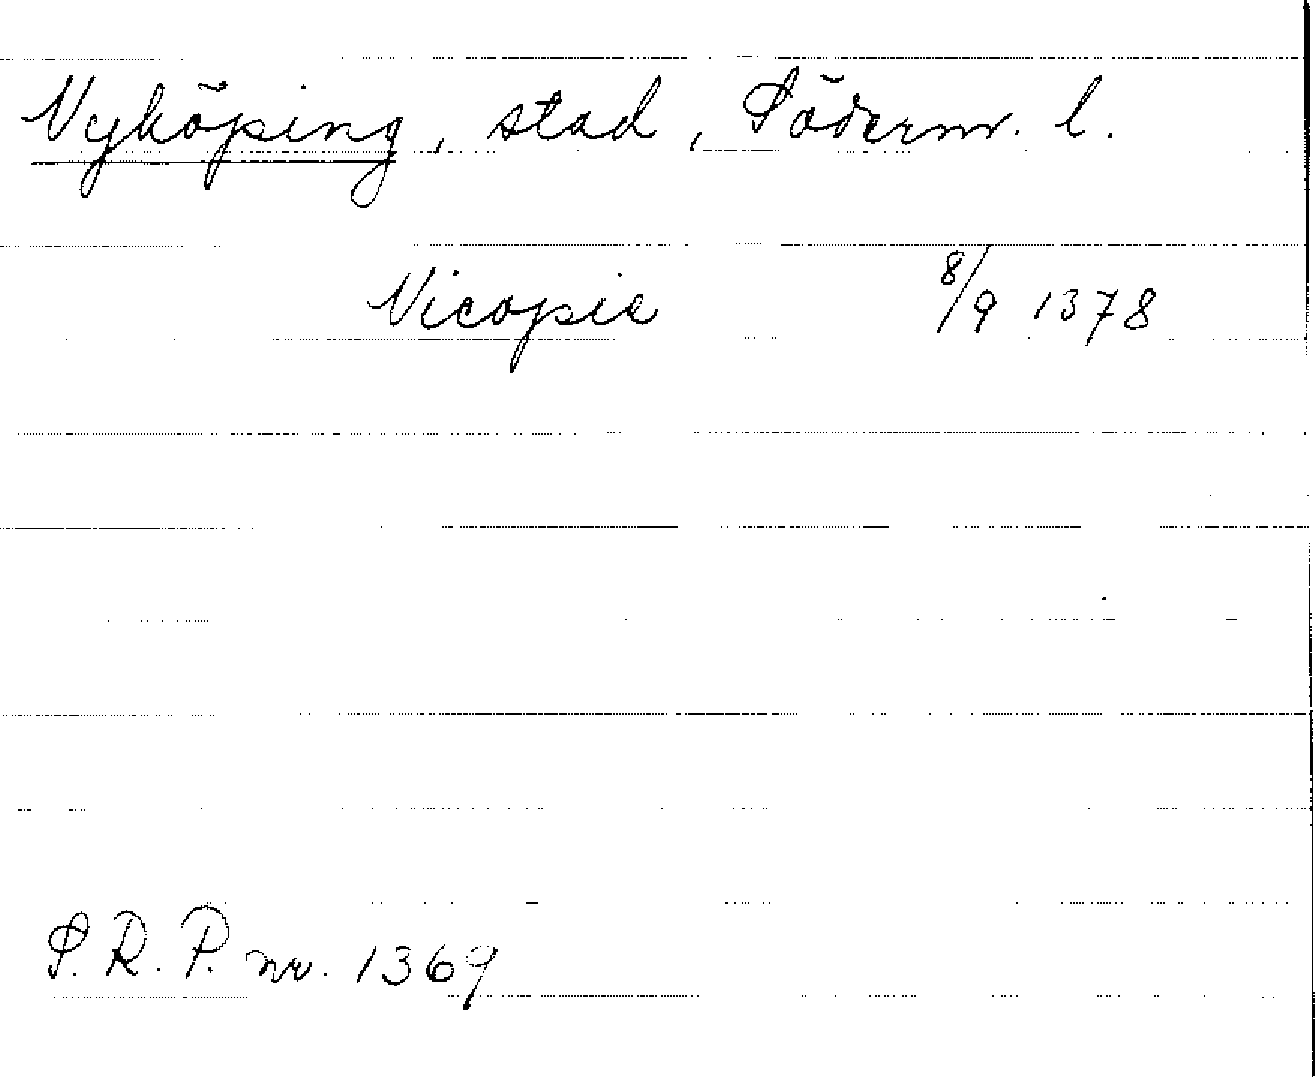 Nyköping, stad, Söderm. l.
Nicopie 8/9 1378
S. R. P. nr. 1369